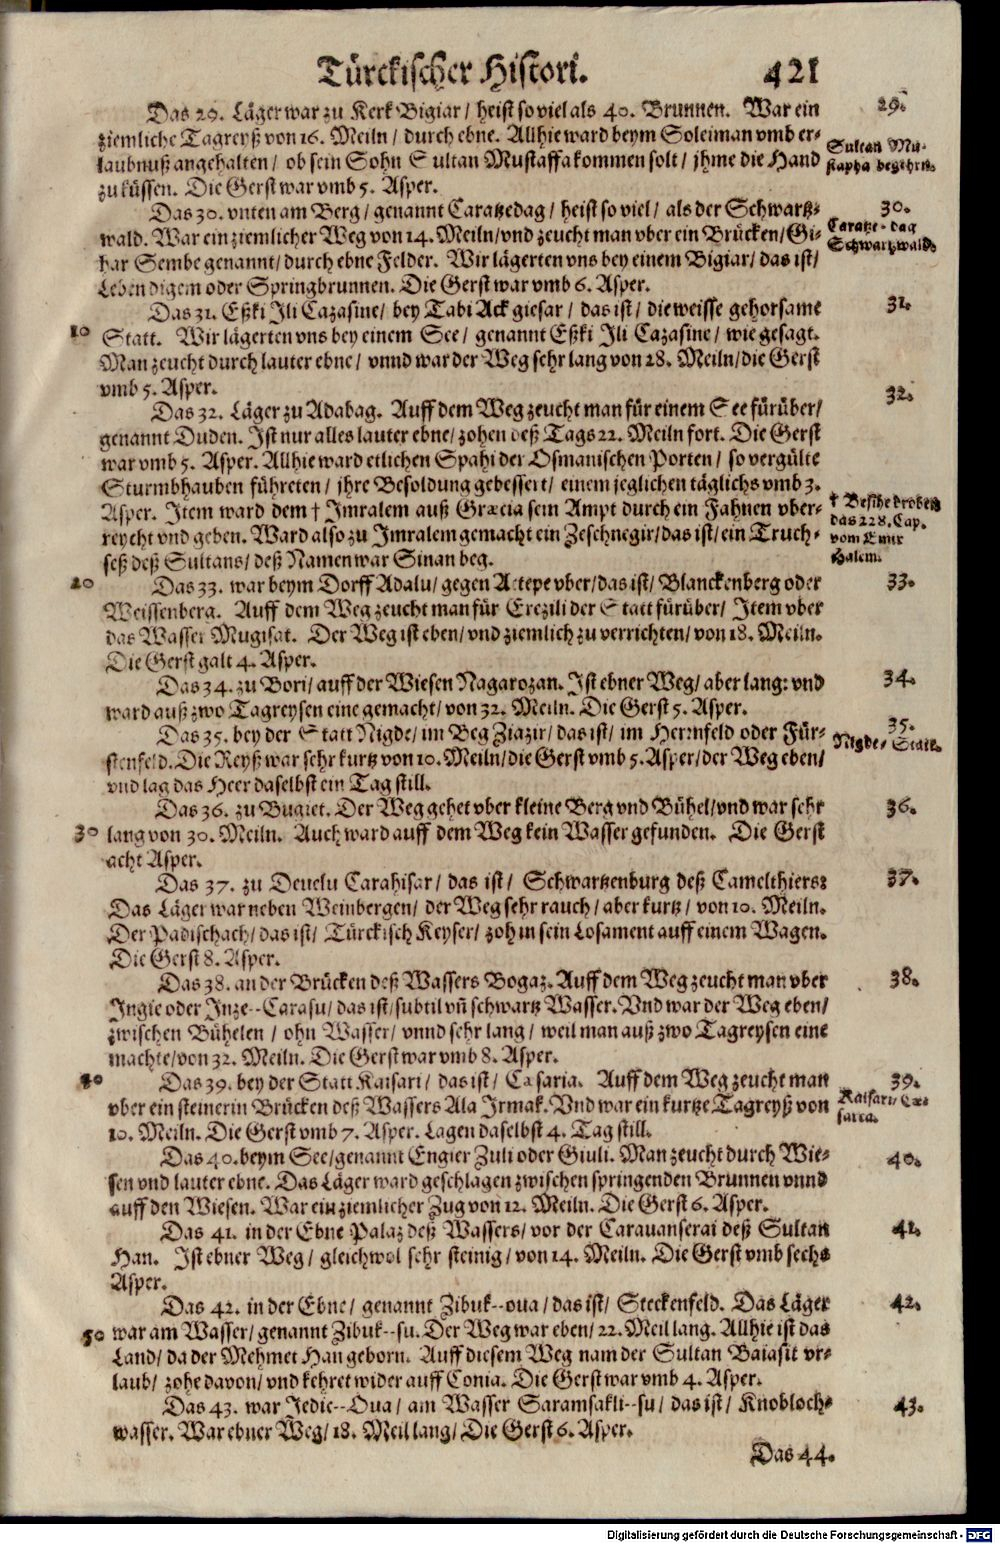 Türckischer Histori. 421
Das 29. Läger war zu Kerk Bigiar / heist so viel als 40. Brunnen. War ein
29.
ziemliche Tagreyß von 16. Meiln / durch ebne. Allhie ward beym Soleiman vmb er-
laubnuß angehalten / ob sein Sohn Sultan Mustaffa kommen solt / jhme die Hand
Sultan Mu-
stapha begehrn.
zu küssen. Die Gerst war vmb 5. Asper.
Das 30. vnten am Berg / genannt Caratzedag / heist so viel / als der Schwartz-
30.
wald. War ein ziemlicher Weg von 14. Meiln / vnd zeucht man vber ein Brücken / Gi-
Caratze-dag
Schwartzwald.
har Sembe genannt / durch ebne Felder. Wir lägerten vns bey einem Bigiar / das ist /
Lebendigem oder Springbrunnen. Die Gerst war vmb 6. Asper.
Das 31. Eßki Ili Cazasine / bey Tabi Ackgiesar / das ist / die weisse gehorsame
31.
10 Statt. Wir lägerten vns bey einem See / genannt Eßki Ili Cazasine / wie gesagt.
Man zeucht durch lauter ebne / vnnd war der Weg sehr lang von 28. Meiln / die Gerst
vmb 5. Asper.
Das 32. Läger zu Adabag. Auff dem Weg zeucht man für einem See fürüber /
32.
genannt Duden. Ist nur alles lauter ebne / zohen deß Tags 22. Meiln fort. Die Gerst
war vmb 5. Asper. Allhie ward etlichen Spahi der Osmanischen Porten / so vergülte
Sturmbhauben führeten / jhre Besoldung gebessert / einem jeglichen täglichs vmb 3.
Asper. Item ward dem † Imralem auß Græcia sein Ampt durch ein Fahnen vber-
† Besihe droben
das 228. Cap.
vom Emir
Halem.
reycht vnd geben. Ward also zu Imralem gemacht ein Zeschnegir / das ist / ein Truch-
seß deß Sultans / deß Namen war Sinan beg.
20 Das 33. war beym Dorff Adalu / gegen Actepe vber / das ist / Blanckenberg oder
33.
Weissenberg. Auff dem Weg zeucht man für Erezili der Statt fürüber / Item vber
das Wasser Mugisat. Der Weg ist eben / vnd ziemlich zu verrichten / von 18. Meiln.
Die Gerst galt 4. Asper.
Das 34. zu Bori / auff der Wiesen Nagarozan. Ist ebner Weg / aber lang: vnd
34.
ward auß zwo Tagreysen eine gemacht / von 32. Meiln. Die Gerst 5. Asper.
Das 35. bey der Statt Nigde / im Beg Ziazir / das ist / im Herrnfeld oder Für-
35.
Nigde / Statt.
stenfeld. Die Reyß war sehr kurtz von 10. Meiln / die Gerst vmb 5. Asper / der Weg eben /
vnd lag das Heer daselbst ein Tag still.
Das 36. zu Bugiet. Der Weg gehet vber kleine Berg vnd Bühel / vnd war sehr
36.
30 lang von 30. Meiln. Auch ward auff dem Weg kein Wasser gefunden. Die Gerst
acht Asper.
Das 37. zu Deuelu Carahisar / das ist / Schwartzenburg deß Camelthiers:
37.
Das Läger war neben Weinbergen / der Weg sehr rauch / aber kurtz / von 10. Meiln.
Der Padischach / das ist / Türckisch Keyser / zoh in sein Losament auff einem Wagen.
Die Gerst 8. Asper.
Das 38. an der Brücken deß Wassers Bogaz. Auff dem Weg zeucht man vber
38.
Ingie oder Inze--Carasu / das ist / subtil vñ schwartz Wasser. Vnd war der Weg eben /
zwischen Bühelen / ohn Wasser / vnnd sehr lang / weil man auß zwo Tagreysen eine
machte / von 32. Meiln. Die Gerst war vmb 8. Asper.
40 Das 39. bey der Statt Kaisari / das ist / Cæsaria. Auff dem Weg zeucht man
39.
vber ein steinerin Brücken deß Wassers Ala Irmak. Vnd war ein kurtze Tagreyß von
Kaisari / Cæ-
sarea.
10. Meiln. Die Gerst vmb 7. Asper. Lagen daselbst 4. Tag still.
Das 40. beym See / genannt Engier Zuli oder Giuli. Man zeucht durch Wie-
40.
sen vnd lauter ebne. Das Läger ward geschlagen zwischen springenden Brunnen vnnd
auff den Wiesen. War ein ziemlicher Zug von 12. Meiln. Die Gerst 6. Asper.
Das 41. in der Ebne Palaz deß Wassers / vor der Carauanserai deß Sultan
41.
Han. Ist ebner Weg / gleichwol sehr steinig / von 14. Meiln. Die Gerst vmb sechs
Asper.
Das 42. in der Ebne / genannt Zibuk--oua / das ist / Steckenfeld. Das Läger
42.
50 war am Wasser / genannt Zibuk--su. Der Weg war eben / 22. Meil lang. Allhie ist das
Land / da der Mehmet Han geborn. Auff diesem Weg nam der Sultan Baiasit vr-
laub / zohe davon / vnd kehret wider auff Conia. Die Gerst war vmb 4. Asper.
Das 43. war Jedic--Oua / am Wasser Saramsakli--su / das ist / Knobloch-
43.
wasser. War ebner Weg / 18. Meil lang / Die Gerst 6. Asper.
Das 44.
Digitalisierung gefördert durch die Deutsche Forschungsgemeinschaft - DFG